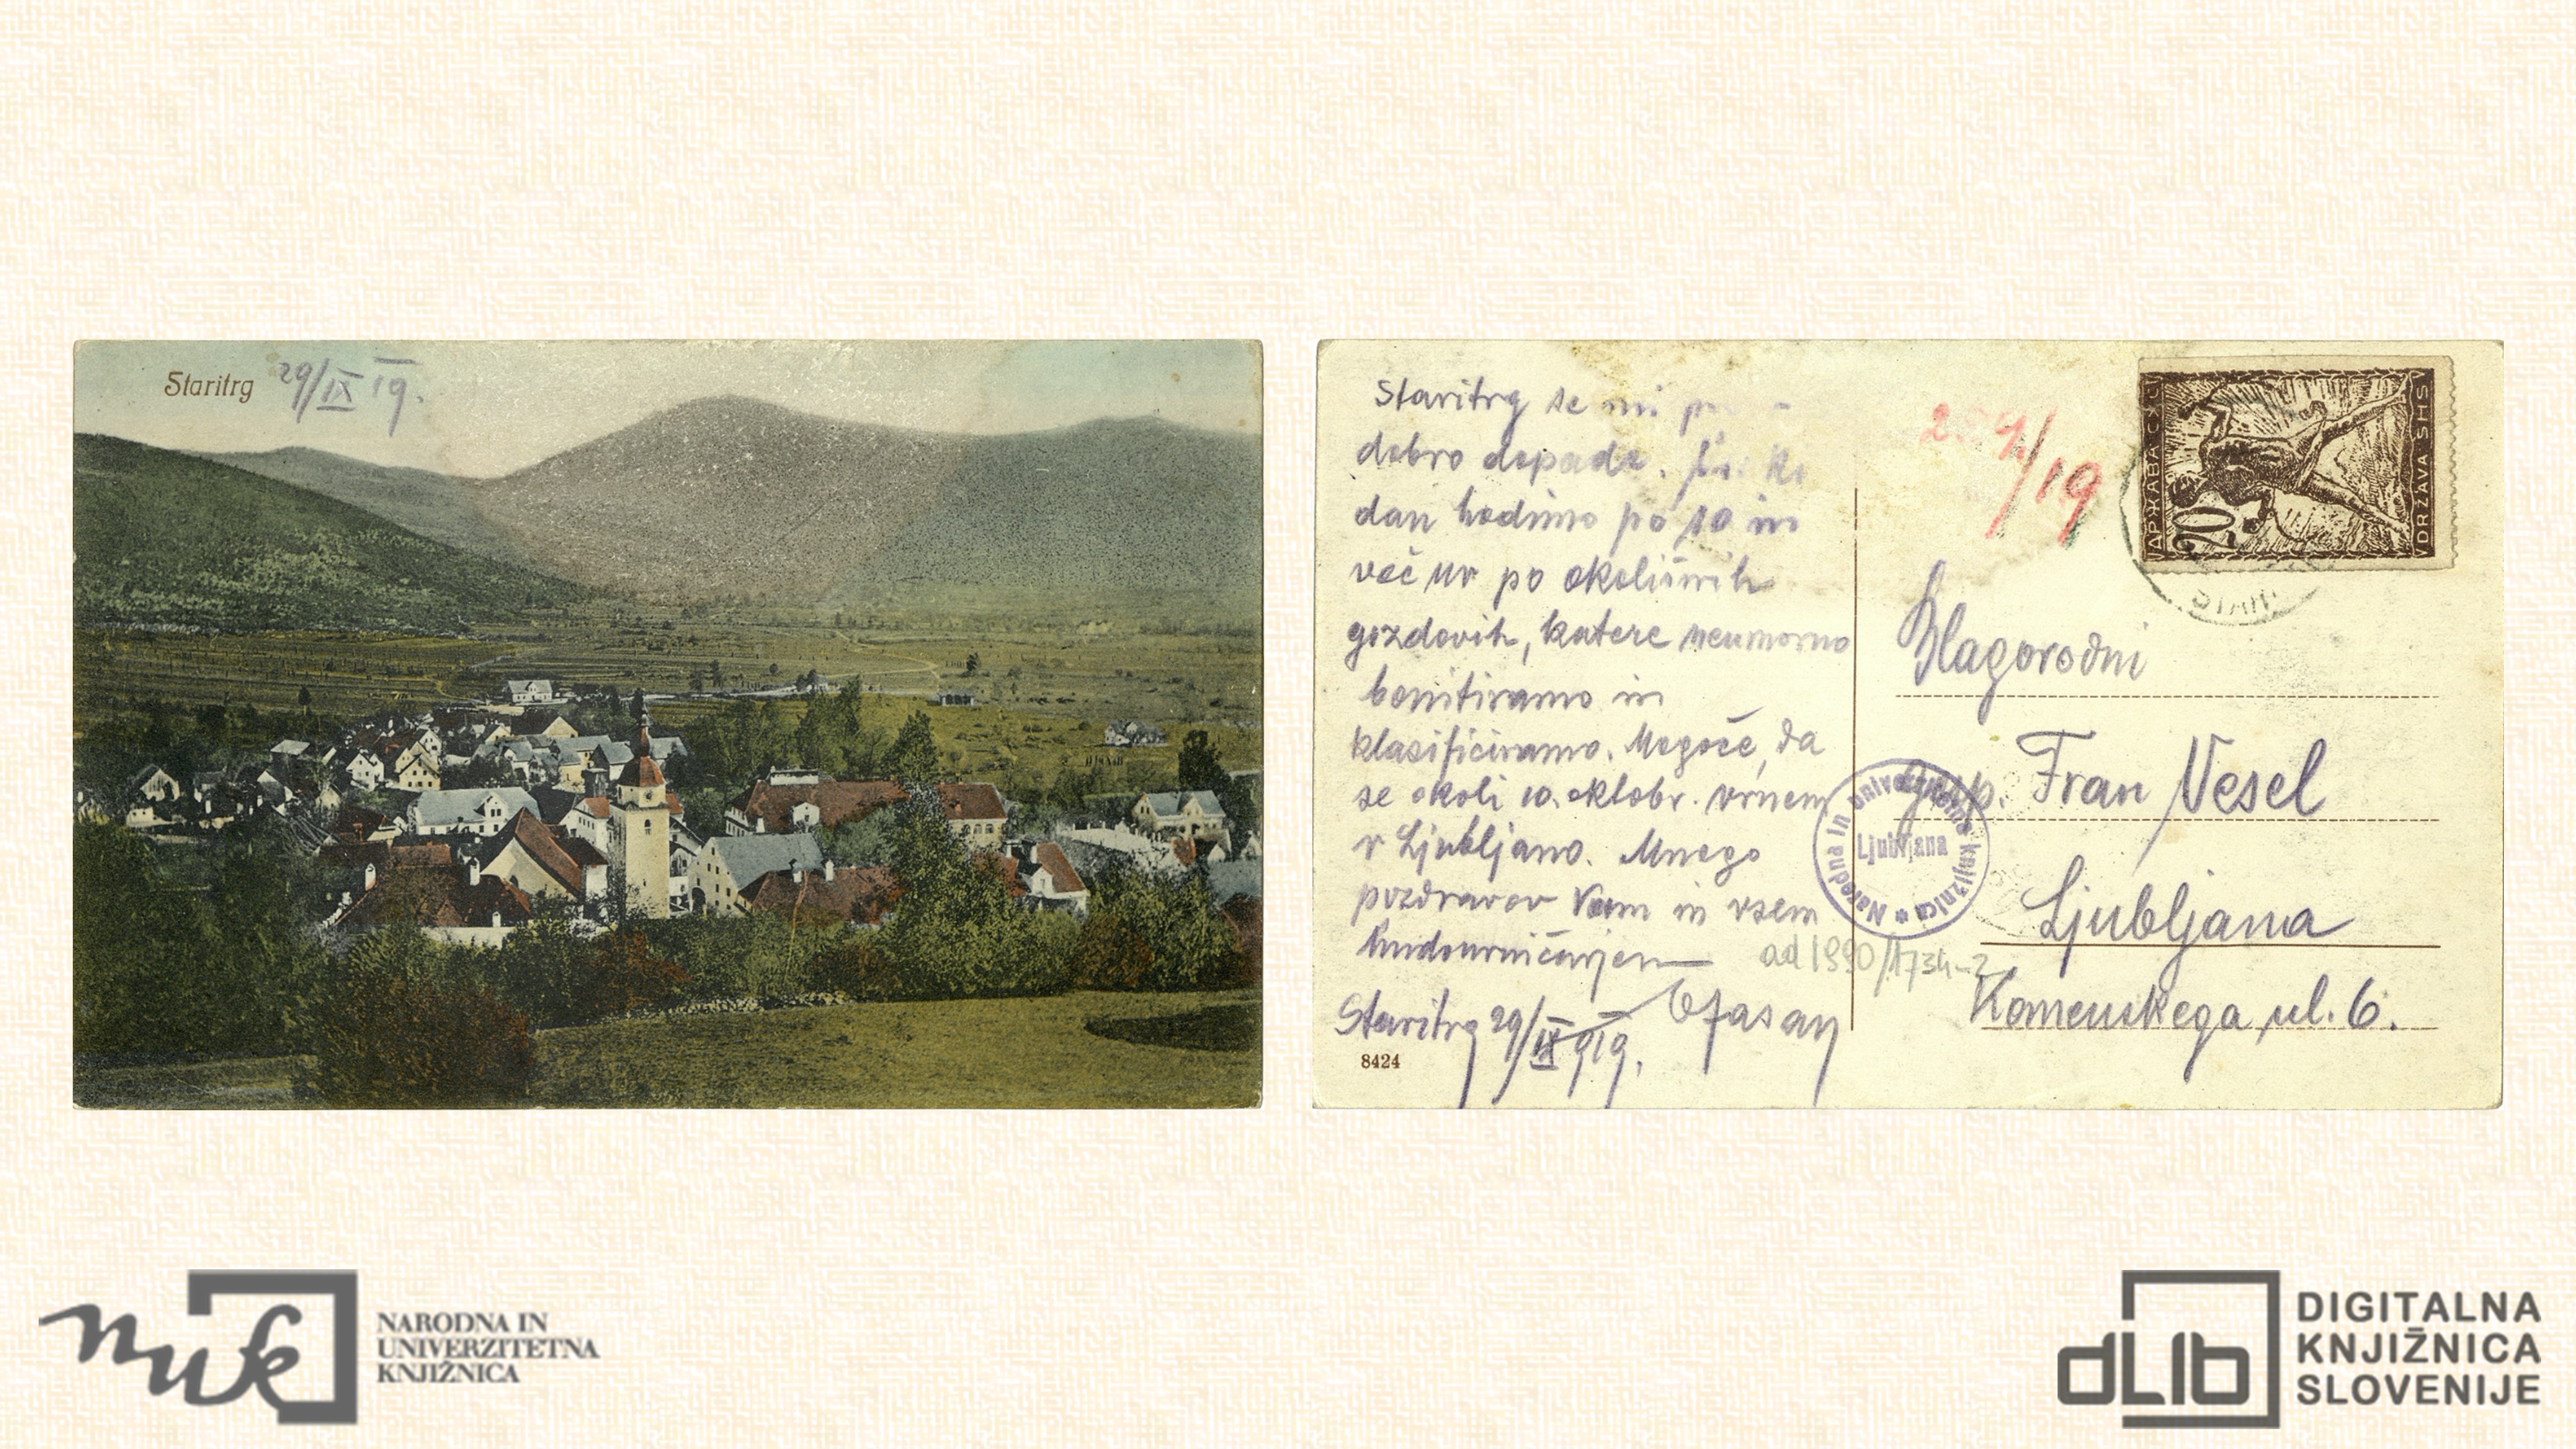 Staritrg 29/IX 19.
Staritrg se mi
dobro dopade.
dan hodimo po 10 in
več ur po okolišnih
gozdovih, katere neumorno
bonitiramo in
klasificiramo. Mogoče, da
se okoli 10. oktobr. vrnem
v Ljubljano. Mnogo
pozdravov Vam in vsem
Staritrg 29/IX 919.
8424
/19
20
DRŽAVA SHS
Blagorodni
gosp. Fran Vesel
Ljubljana
Komenskega ul. 6.
Narodna in univerzitetna knjižnica
Ljubljana
ad 1990/1734-2
nuk
NARODNA IN
UNIVERZITETNA
KNJIŽNICA
dLib
DIGITALNA
KNJIŽNICA
SLOVENIJE